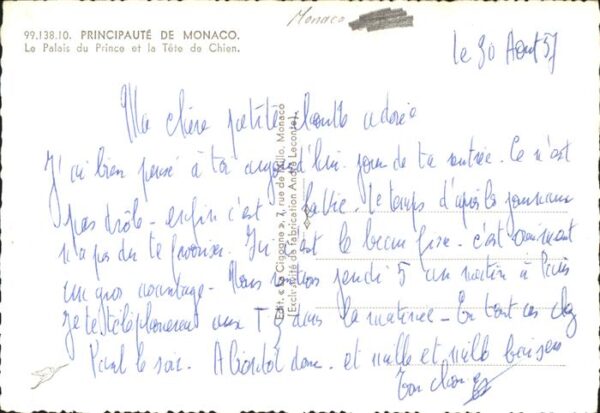 Monaco
99.138.10. PRINCIPAUTÉ DE MONACO.
Le Palais du Prince et la Tête de Chien.
le 30 Août 57
Ma chère petite adorée
J'ai bien pensé à toi aujourd'hui. jour de ta rentrée. Ce n'est
pas drôle - enfin c'est la vie. Le temps d'après les journaux
n'a pas du te favoriser. Ici c'est le beau fixe. c'est vraiment
un gros avantage - Nous rentrons jeudi 5 au matin à Paris
Je te téléphonerai aux T dans la matinée - En tout cas chez
Paul le soir. A bientôt donc. et mille et mille baisers
Ton
Edit. « La Cigogne », 7, rue de Millo, Monaco
(Exclusivité de Fabrication André Leconte).